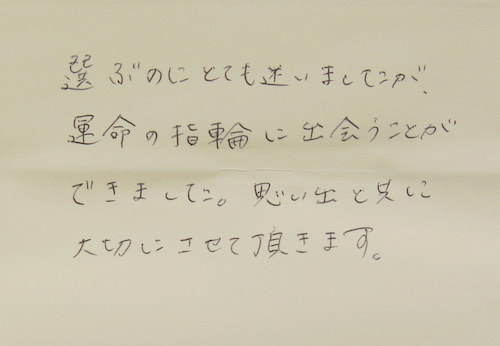 選ぶのにとても迷いましたが、
運命の指輪に出会うことが
できました。思い出と共に
大切にさせて頂きます。